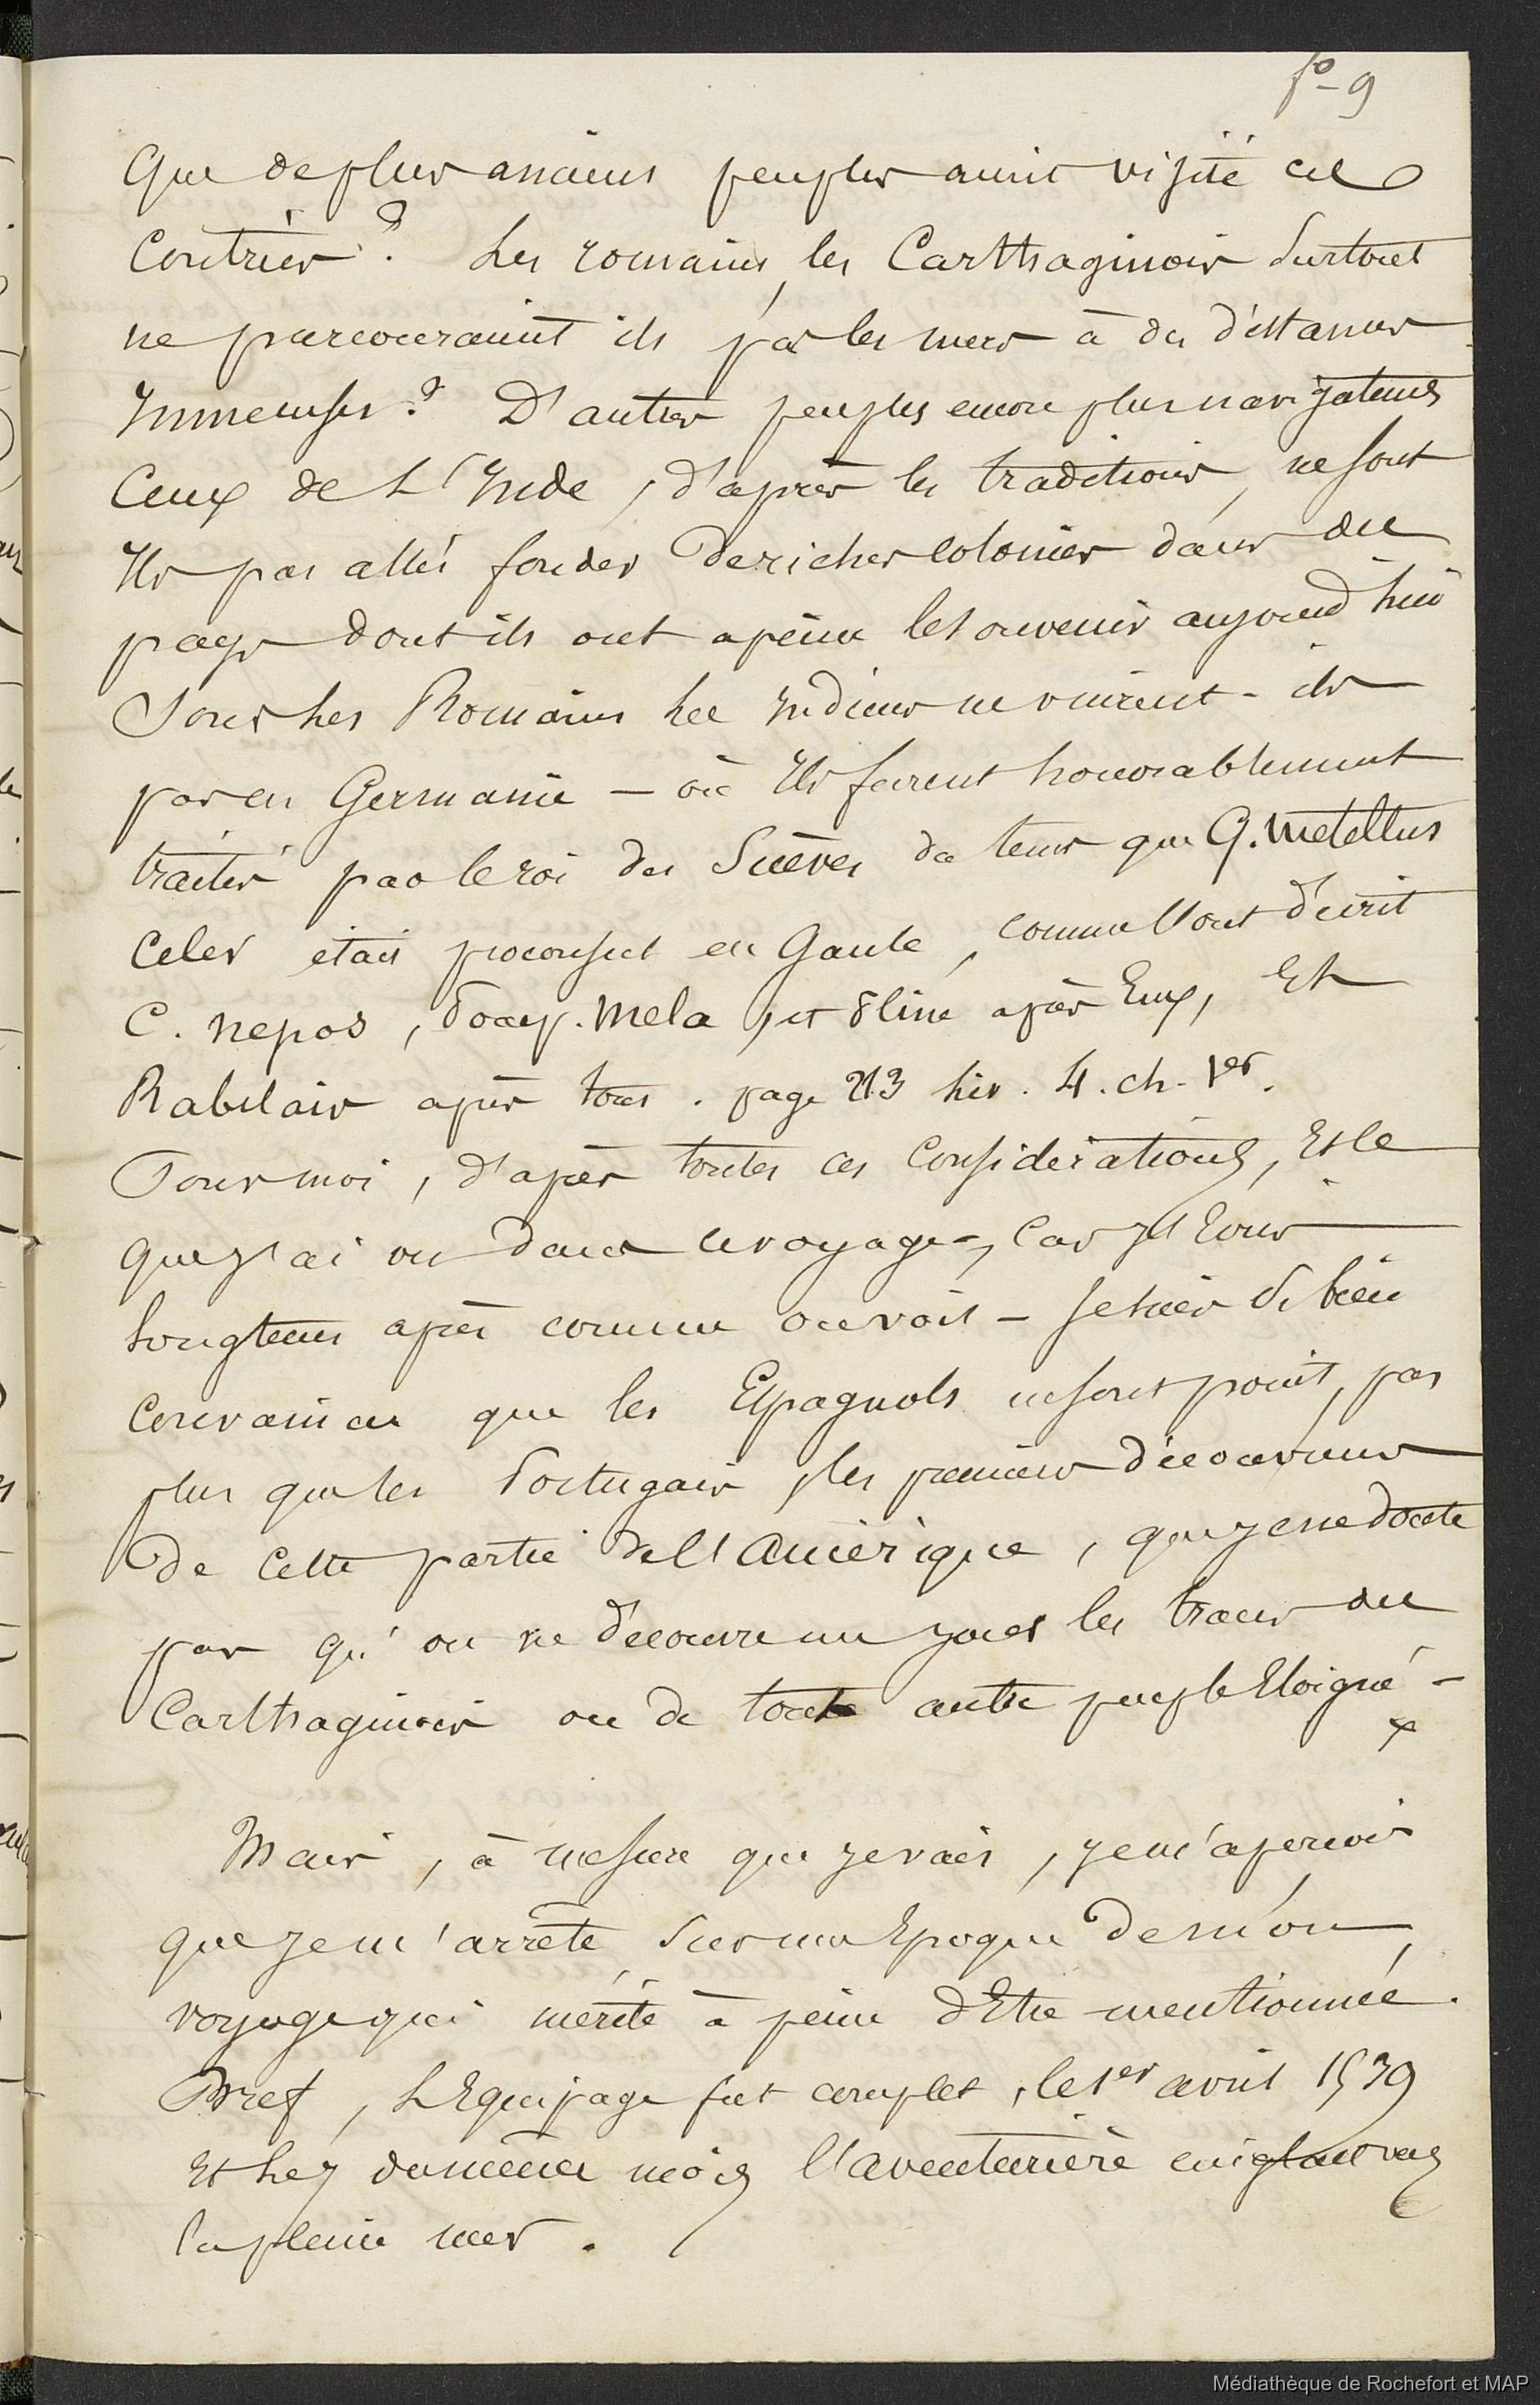 fo-9
Que de plus anciens peuples aient visité ces
Contrées ? Les romains, les Carthaginois surtout
ne parcouraient ils pas les mers à des distances
Immenses ? D'autres peuples encore plus navigateurs
Ceux de L'Inde, d'après les traditions, ne sont
Ils pas allés fonder de riches colonies dans des
pays dont ils ont apeine le souvenir aujourd'hui
Sous les Romains les Indiens ne vinrent-ils
pas en Germanie — où Ils furent honorablement
traités par le roi des Suèves du tems que Q. Metellus
Celer était proconsul en Gaule, comme l'ont décrit
C. nepos, Pomp. Mela, et Pline après Eux, Et
Rabelais après tous. page 213 Liv. 4. ch. 1er.
Pour moi, d'après toutes ces Considérations, Et ce
que J'ai vu dans ce voyage, Car J'Ecris
Longtems après comme on voit — Je suis si bien
Convaincu que les Espagnols ne sont point, pas
plus que les Portugais, les premiers découvreurs
De Cette partie de l'Amérique, que je ne doute
pas qu'on ne découvre un jour les traces des
Carthaginois ou de toute autre peuple Eloigné -
x
Mais, à mesure que je vais, je m'aperçois
que je m'arrête sur une Epoque de mon
voyage qui mérite à peine d'Etre mentionnée.
Bref, L'Equipage fut complet, le 1er avril 1539
Et Le 7 du même mois l'aventurière
la pleine mer.
Médiathèque de Rochefort et MAP